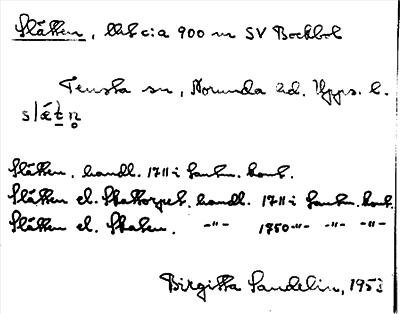 Slätten, tht c:a 900 m SV Bockbol
Tensta sn, Norunda hd. Upps. l.
slǽtn̥
Slätten. handl. 1711 i Lantm. kont.
Slätten el. Skattorpet. handl. 1711 i Lantm. kont.
Slätten el. Skaten. -"- 1750 -"- -"- -"-
Birgitta Sandelin, 1953